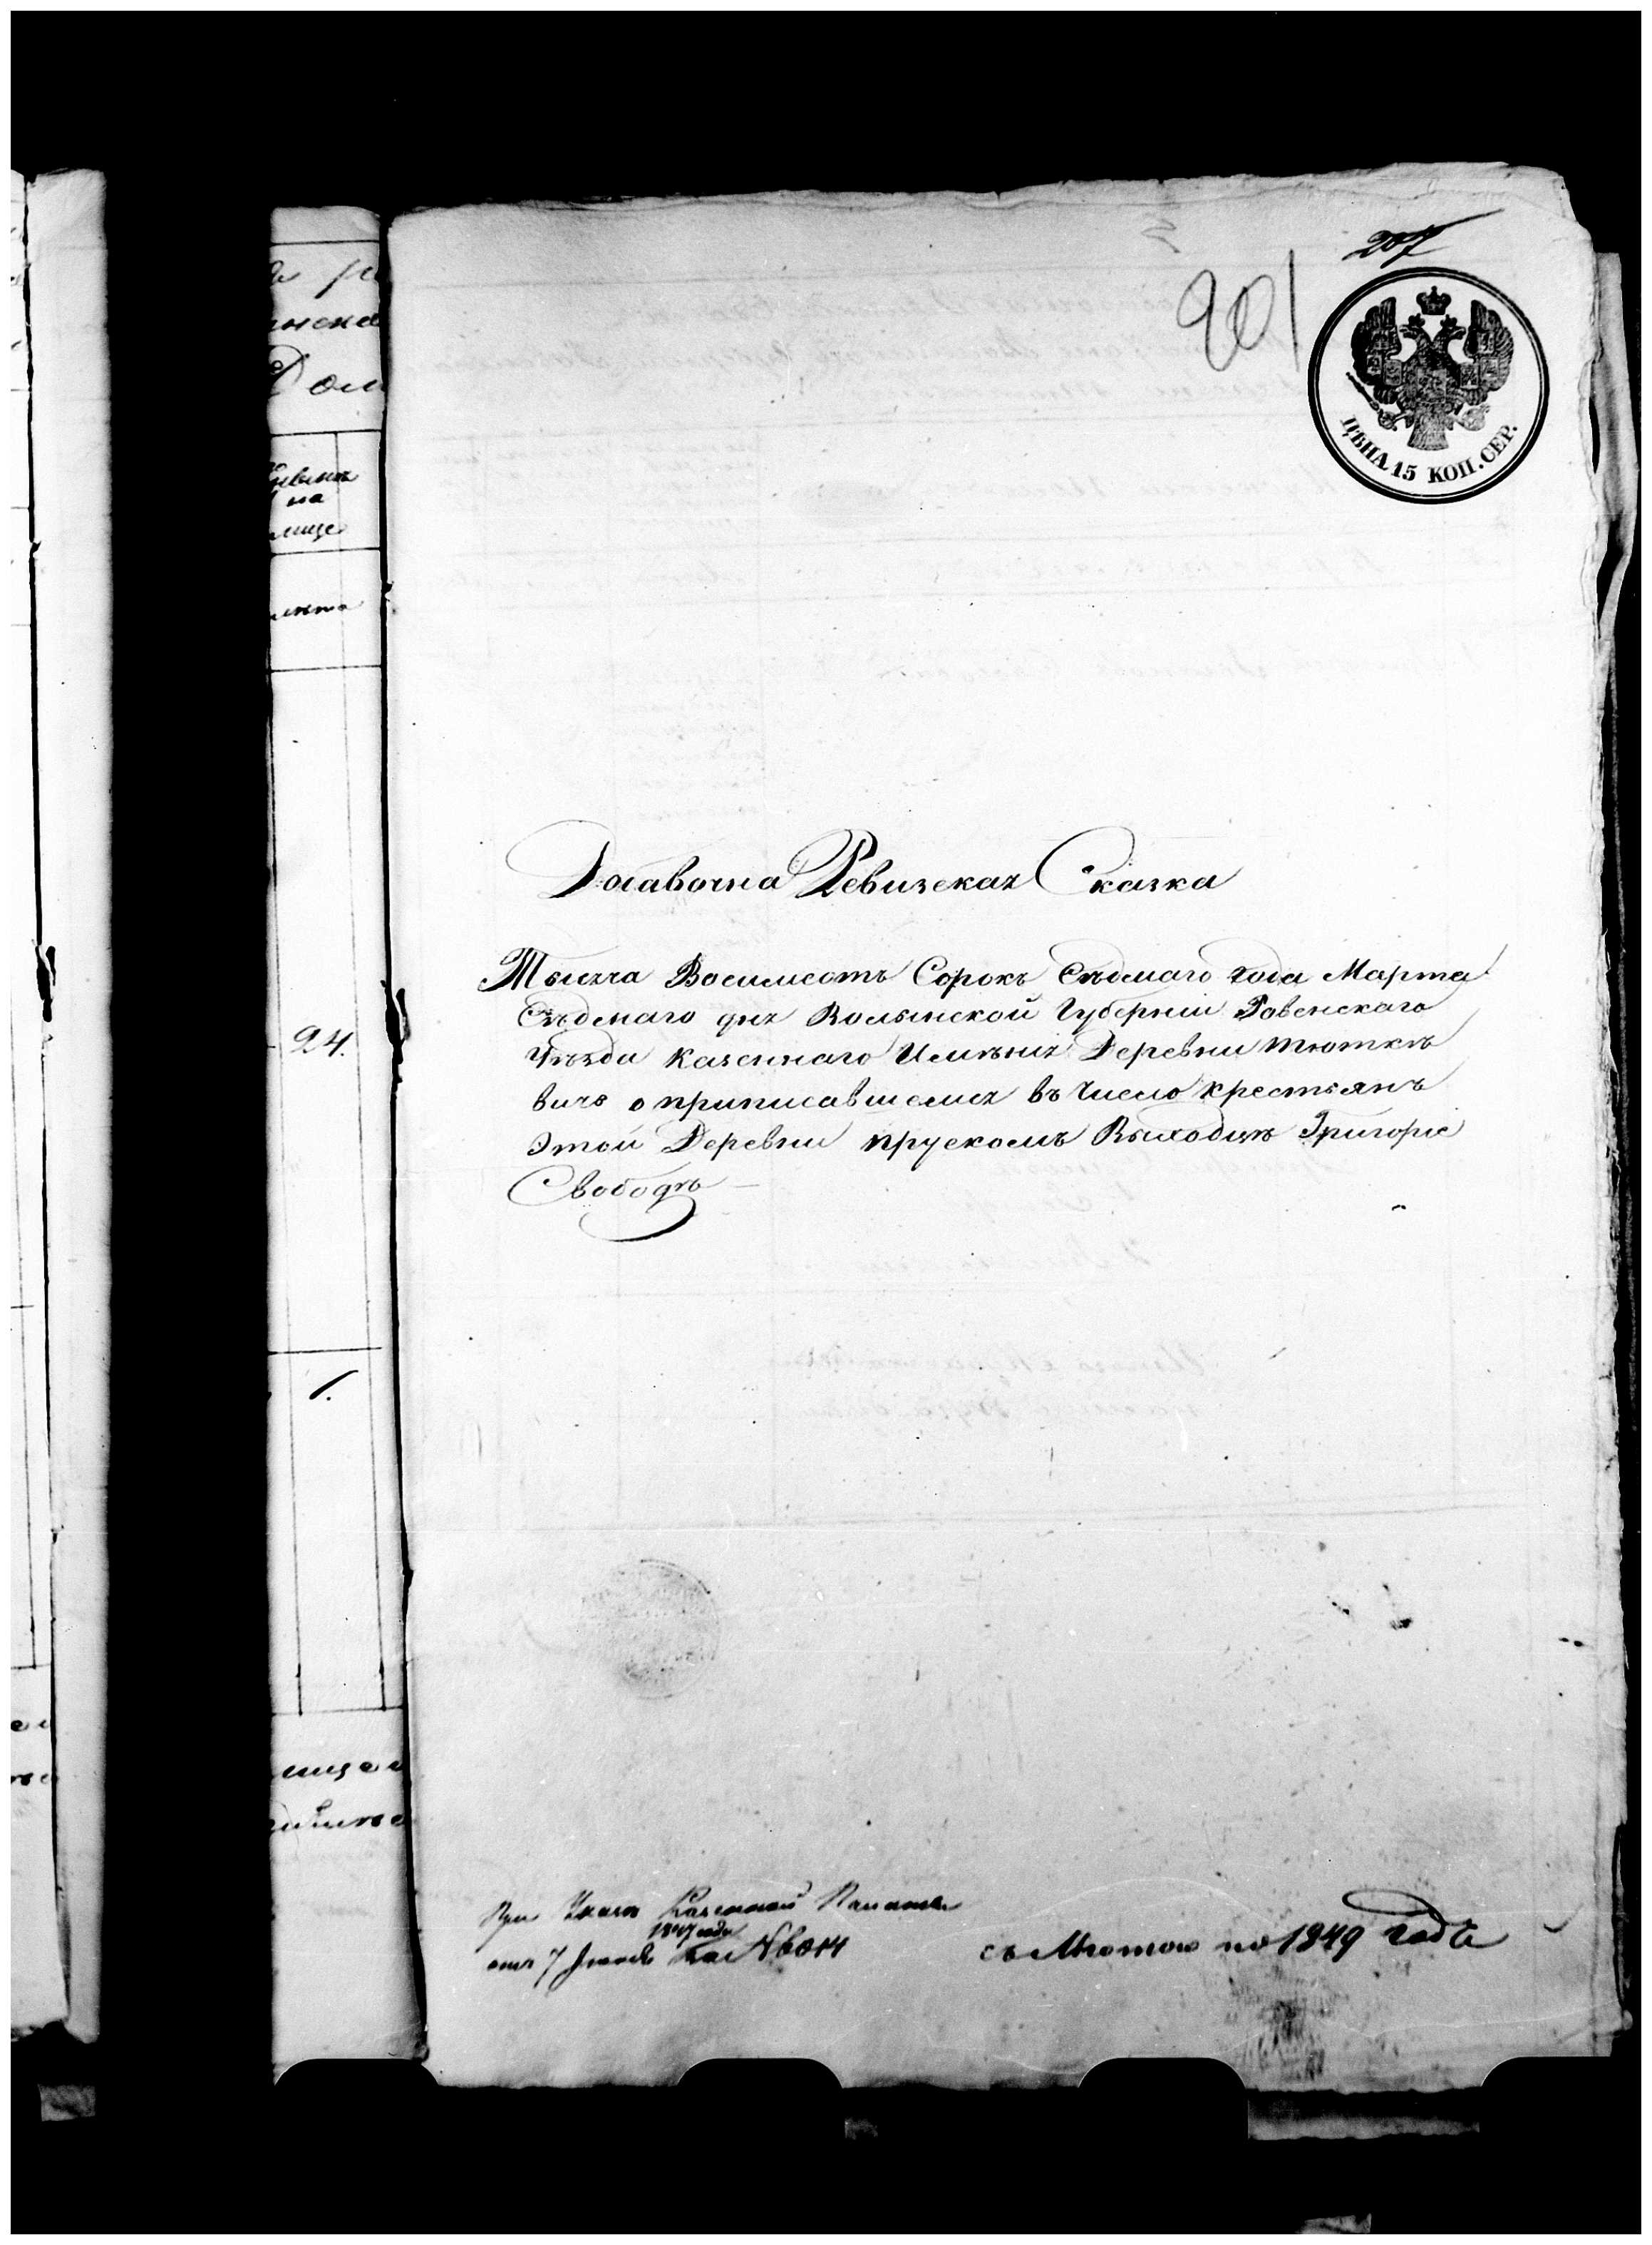 207
201
ЦѢНА 15 КОП. СЕР.
Добавочна Ревизская Сказка
Тысяча Восимсотъ Сорокъ Съдмаго года Марта
Съдмаго дня Волынской Губерніи Ровенскаго
Уѣзда Казеннаго Имѣнія Деревни Тютке
вичъ о приписавшемся въ Число крестьянъ
этой Деревни прускомъ Выходцѣ Григоріе
Свободѣ
При Указѣ Казенной Палаты
1847 года
отъ 7
съ льготою по 1849 годъ
24.
1.